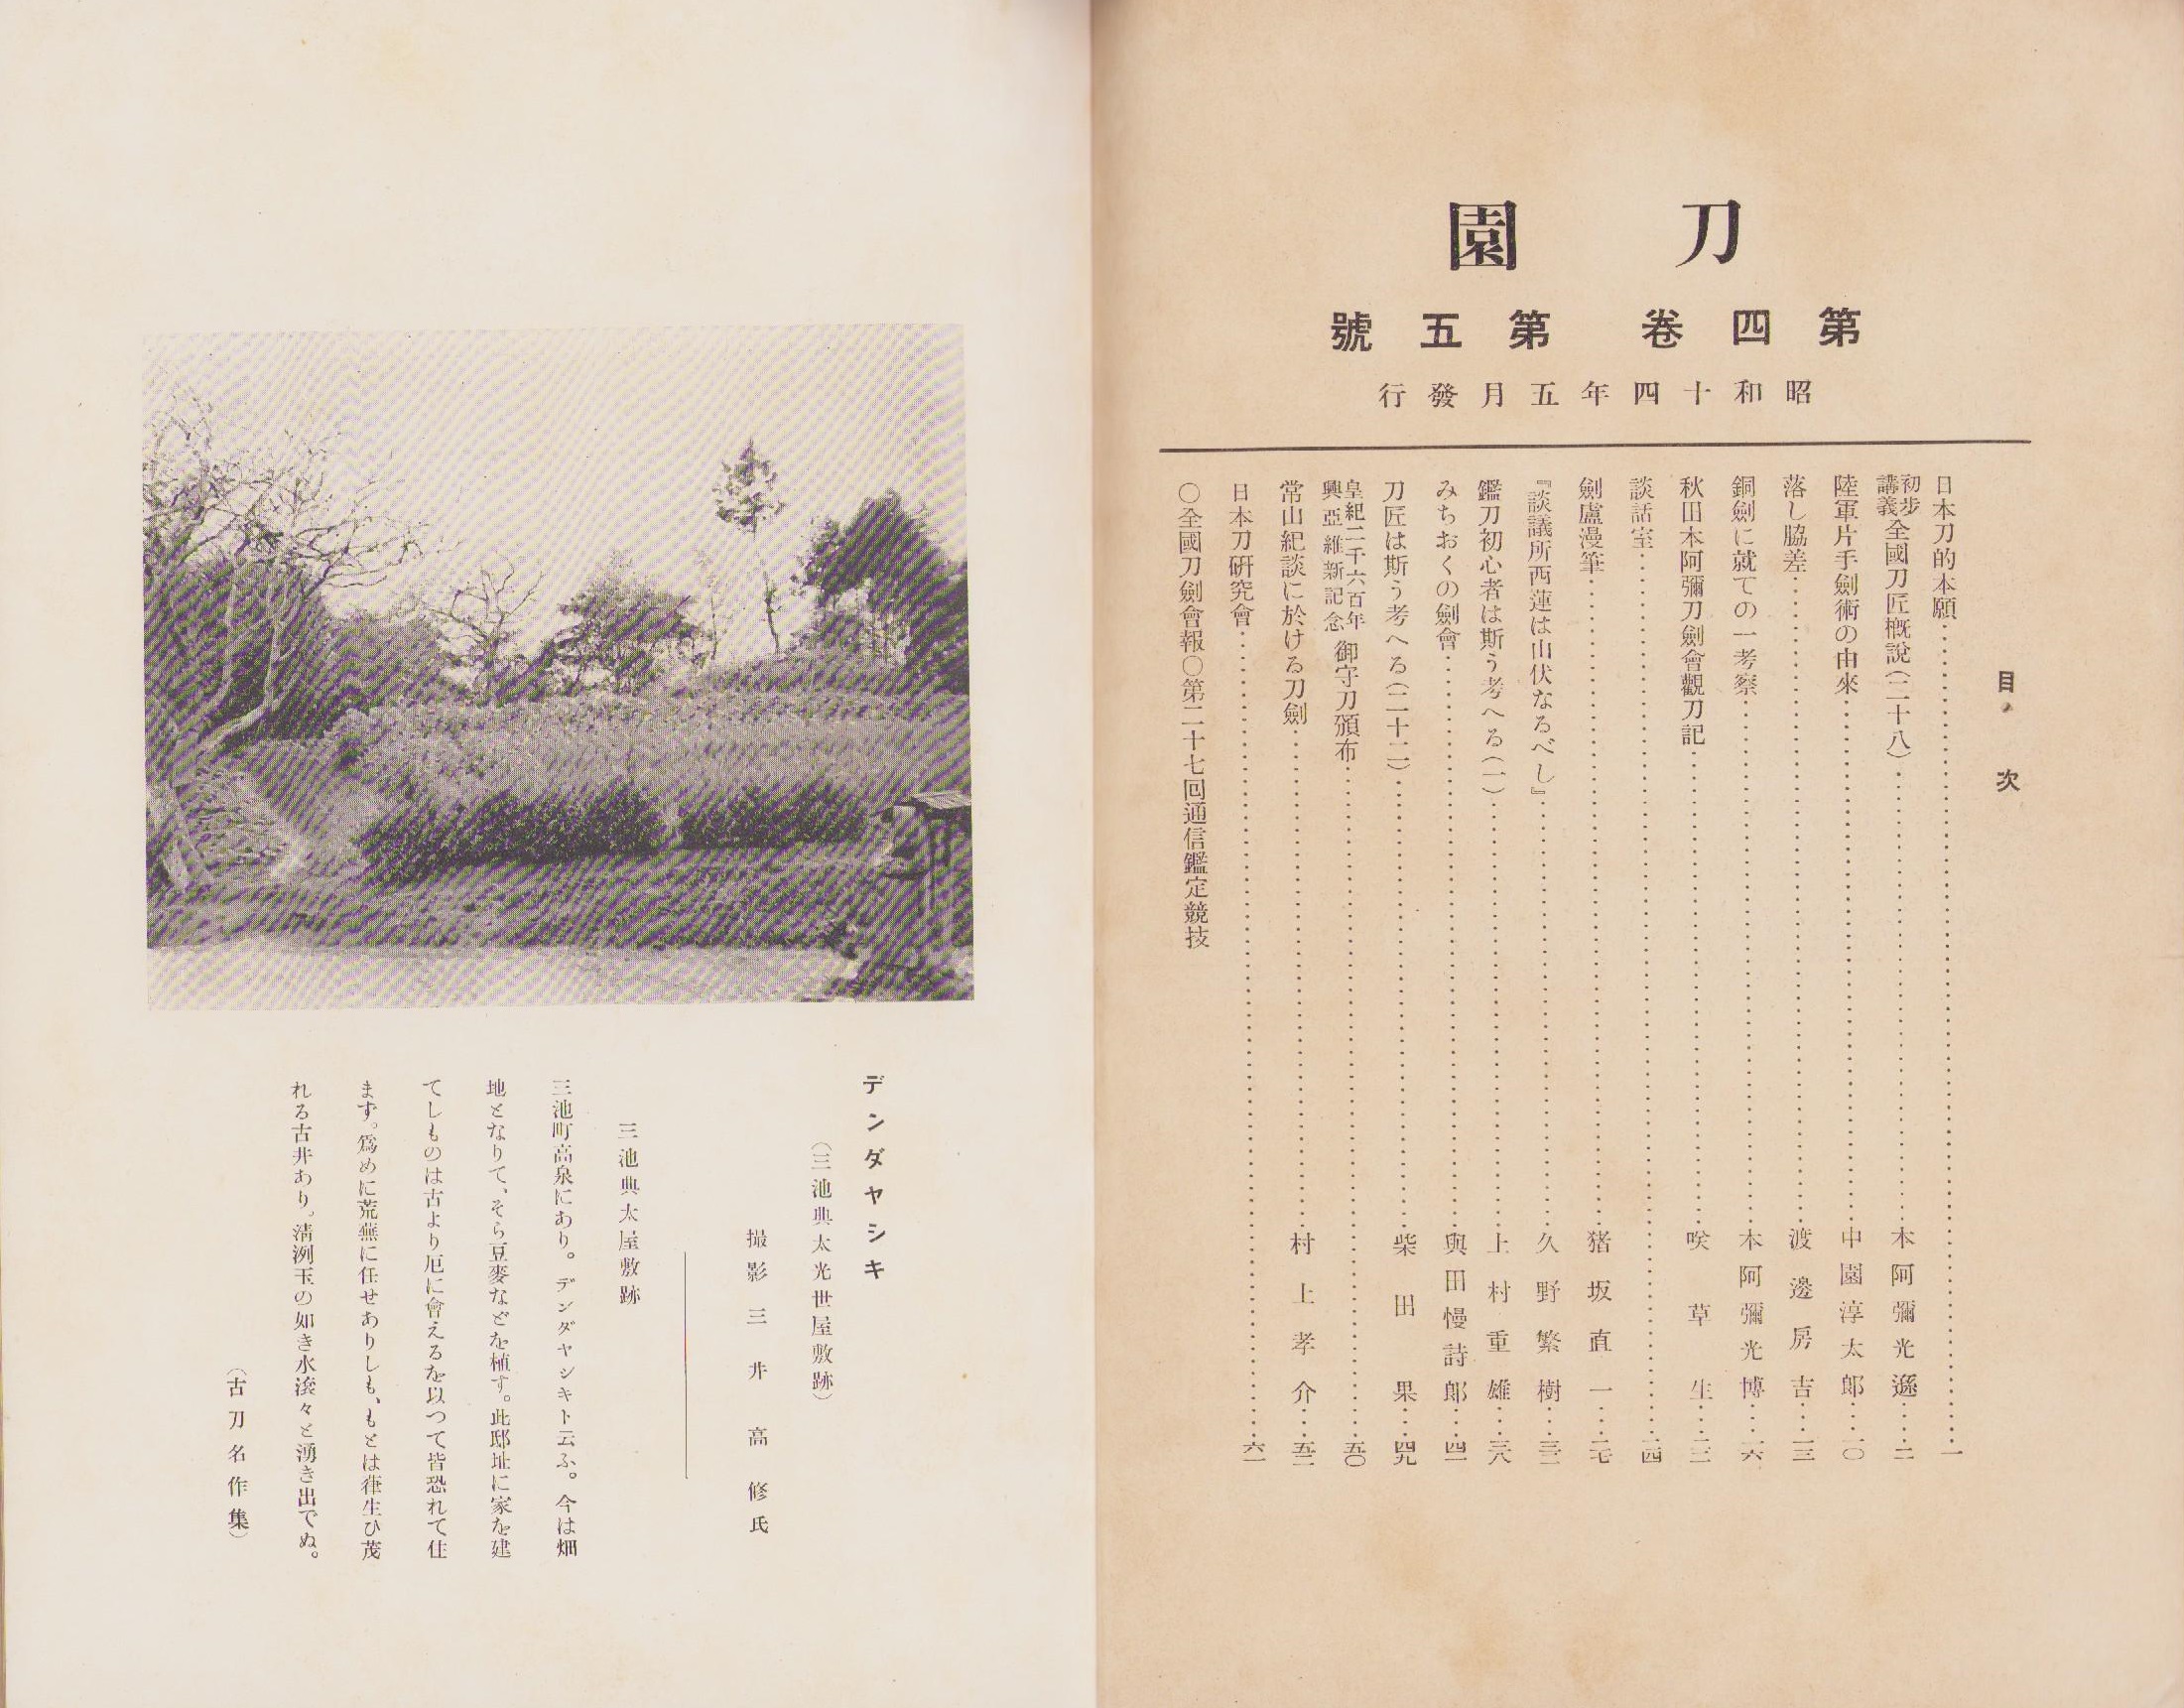 刀園
第四卷 第五號
昭和十四年五月發行
目次
日本刀的本願……一
初步講義 全國刀匠概說(二十八)……本阿彌光遜……二
陸軍片手劍術の由來……中園淳太郎……一〇
落し脇差……渡邊房吉……一三
銅劍に就ての一考察……本阿彌光博……一六
秋田本阿彌刀劍會觀刀記……咲草生……二二
談話室……二四
劍盧漫筆……猪坂直一……二七
『談議所西蓮は山伏なるべし』……久野繁樹……三三
鑑刀初心者は斯う考へる(一)……上村重雄……三八
みちおくの劍會……與田慢詩郞……四一
刀匠は斯う考へる(二十二)……柴田果……四九
皇紀二千六百年 興亞維新記念 御守刀頒布……五〇
常山紀談に於ける刀劍……村上孝介……五二
日本刀硏究會……六一
〇全國刀劍會報〇第二十七回通信鑑定競技
デンダヤシキ
(三池典太光世屋敷跡)
撮影 三井高修氏
三池典太屋敷跡
三池町高泉にあり。デンダヤシキト云ふ。今は畑
地となりて、そら豆麥などを植す。此邸址に家を建
てしものは古より厄に會えるを以つて皆恐れて住
まず。爲めに荒蕪に任せありしも、もとは雜生ひ茂
れる古井あり。淸洌玉の如き水滾々と湧き出でぬ。
(古刀名作集)